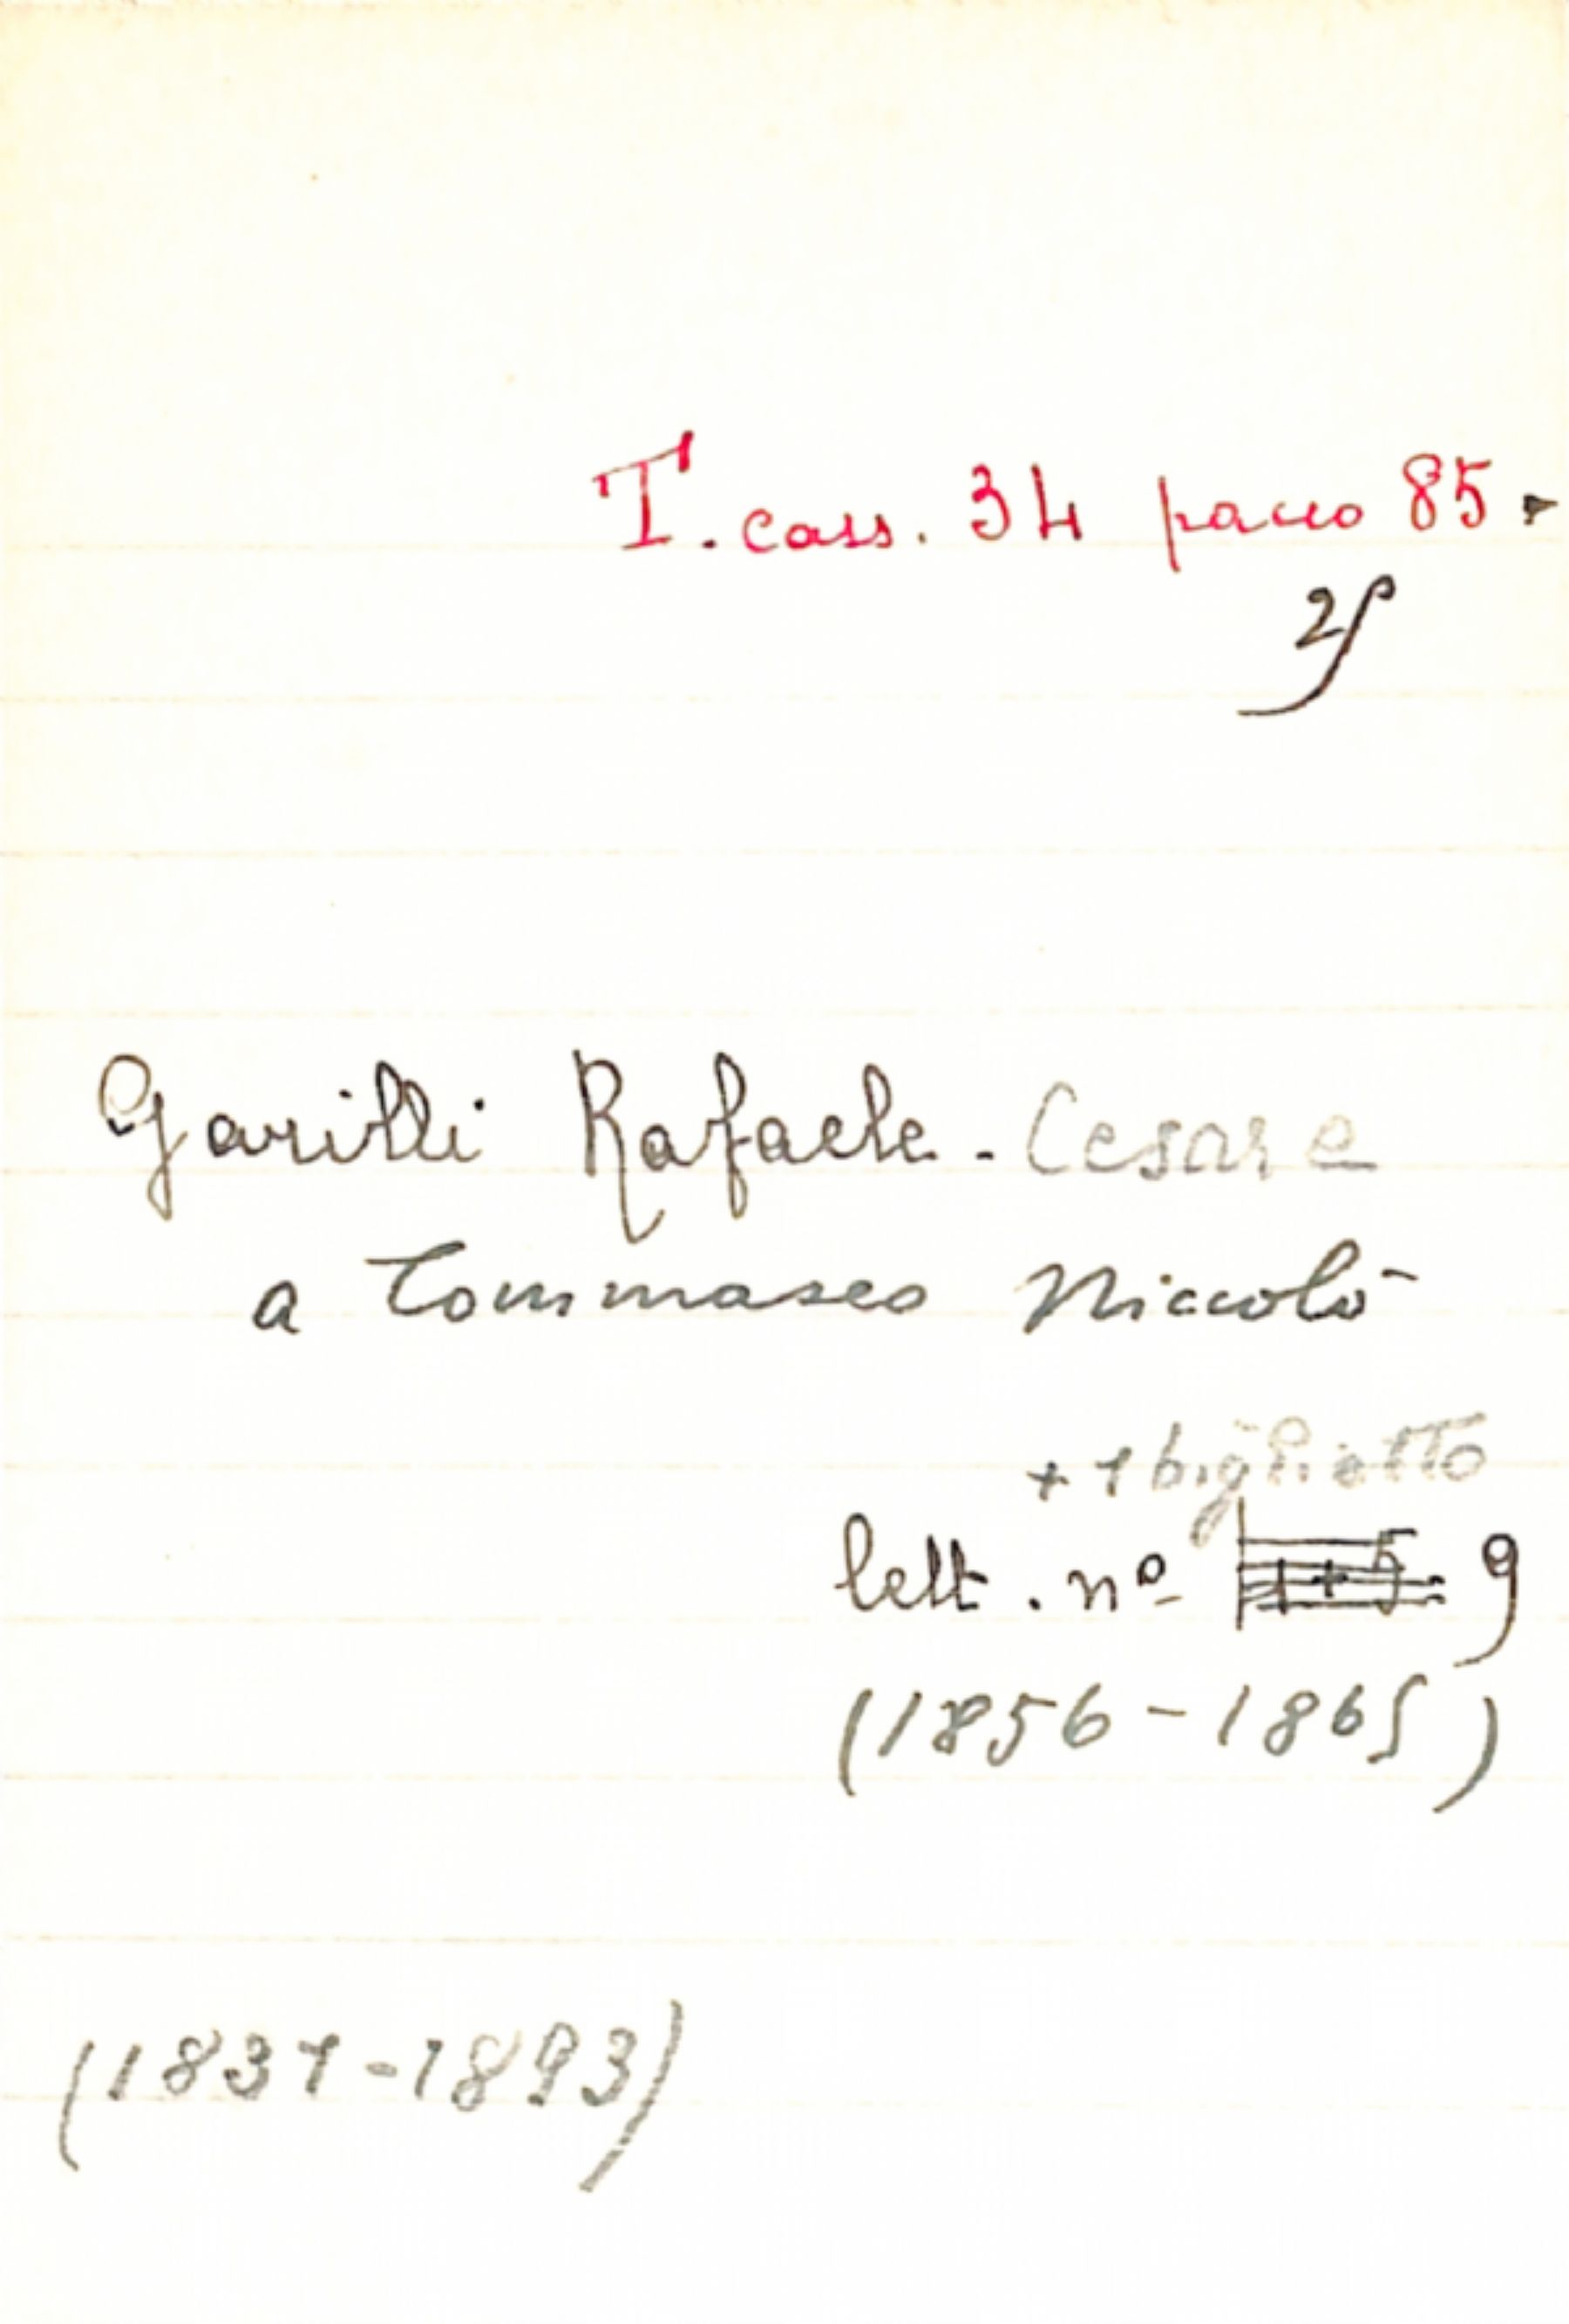 T. cass. 34 pacco 85.
2
Garilli Rafaele - Cesare
a Tommaseo Niccolò
+ 1 biglietto
lett. nº 9
(1856 - 1865)
(1831-1893)